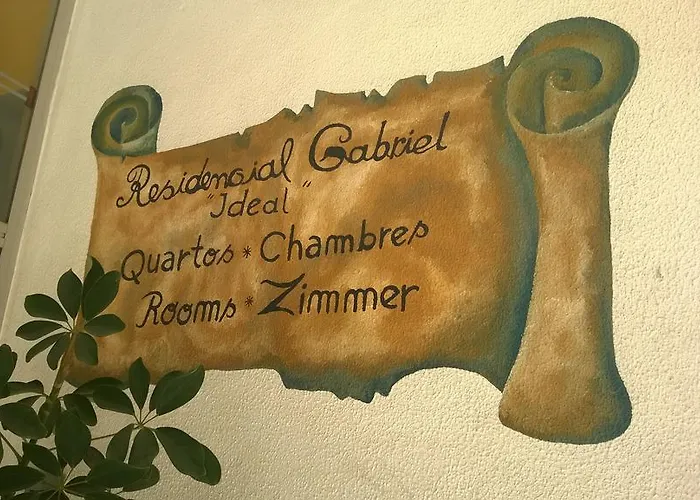 Residencial Gabriel
"Ideal"
Quartos * Chambres
Rooms * Zimmer